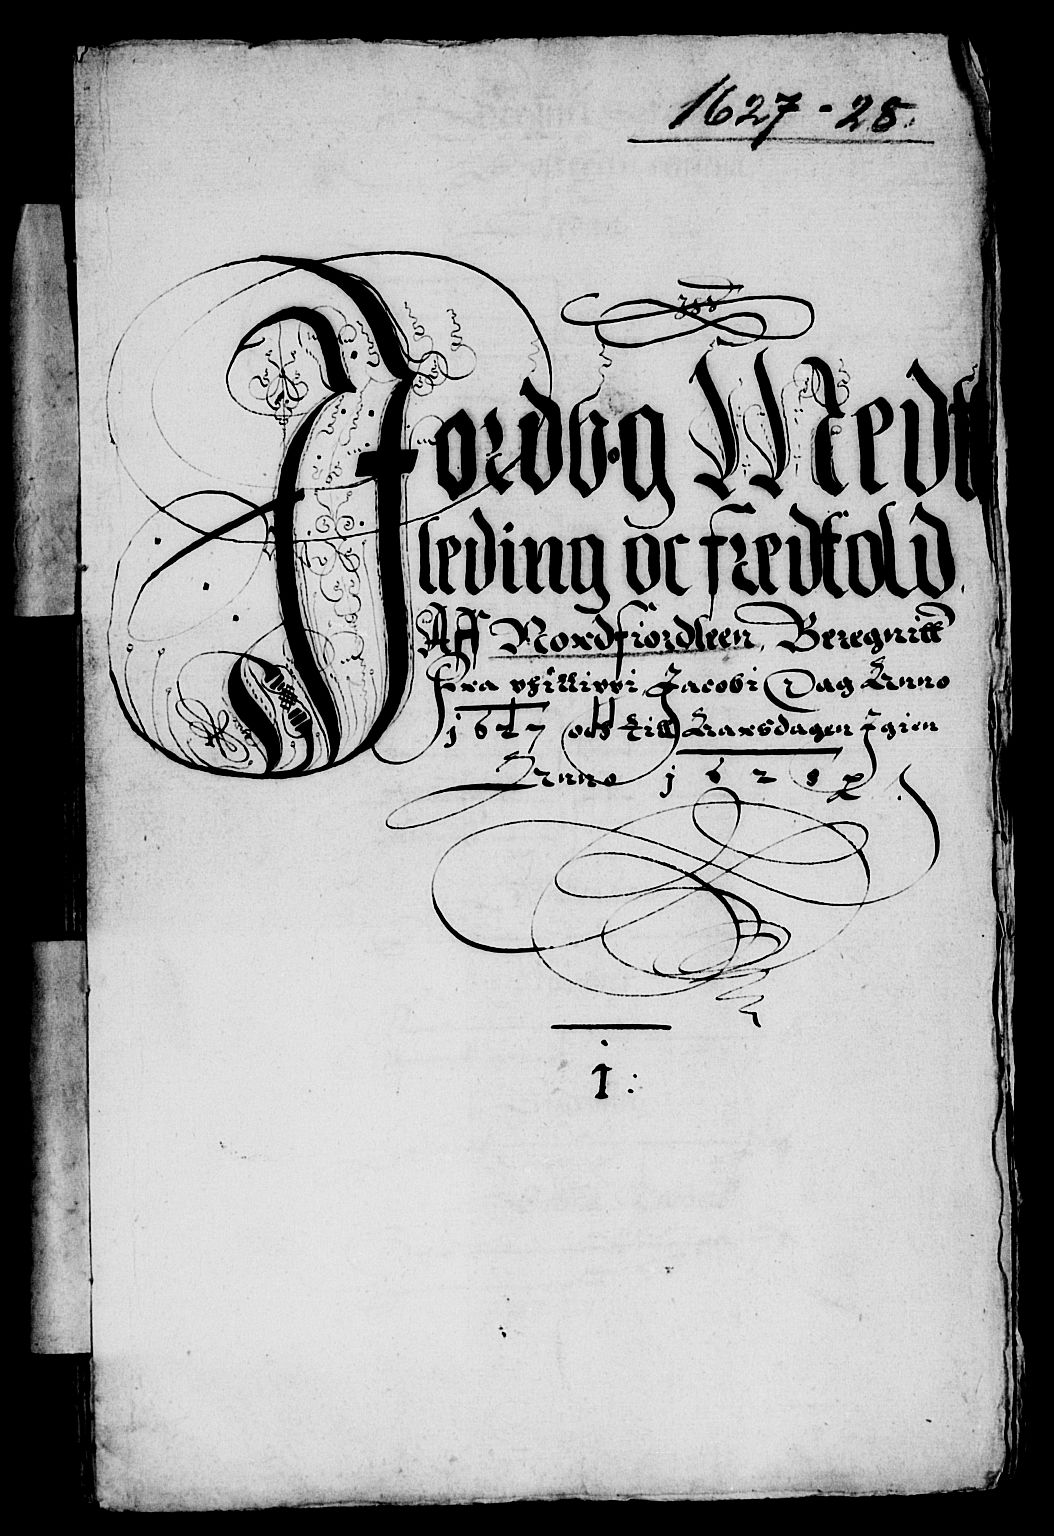 1627-28.
Jordbog Medt
leding oc fredtold
Aff Nordfiordleen, Beregnitt
fra philippi Jacobi Dag Anno
1627 och till Aarsdagen Jgien
Anno 1628
1: